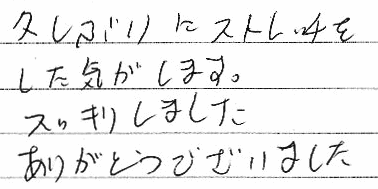 久しぶりにストレッチを
した気がします。
スッキリしました
ありがとうございました